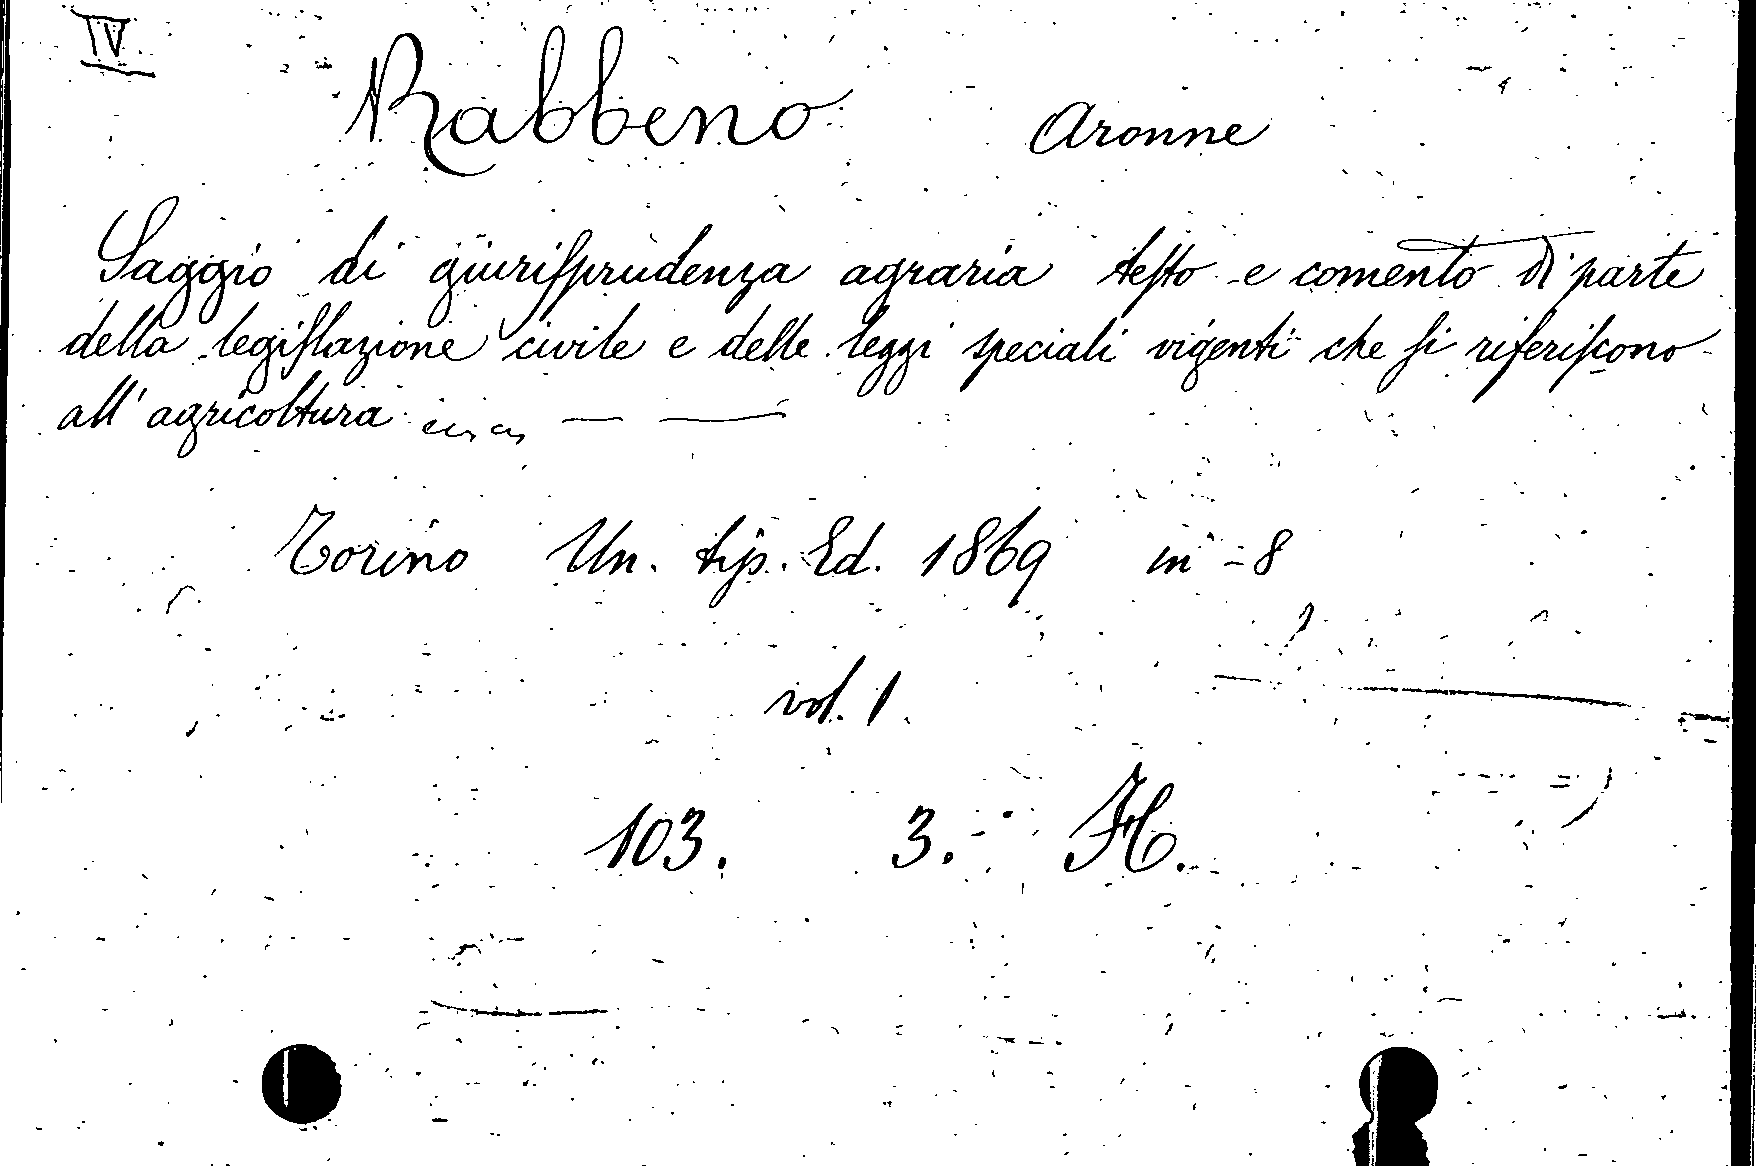 IV
Rabbeno Aronne
Saggio di giurisprudenza agraria testo e comento di parte
della legislazione civile e delle leggi speciali vigenti che si riferiscono
all'agricoltura
Torino Un. tip. Ed. 1869 in-8
vol. 1.
103. 3. H.